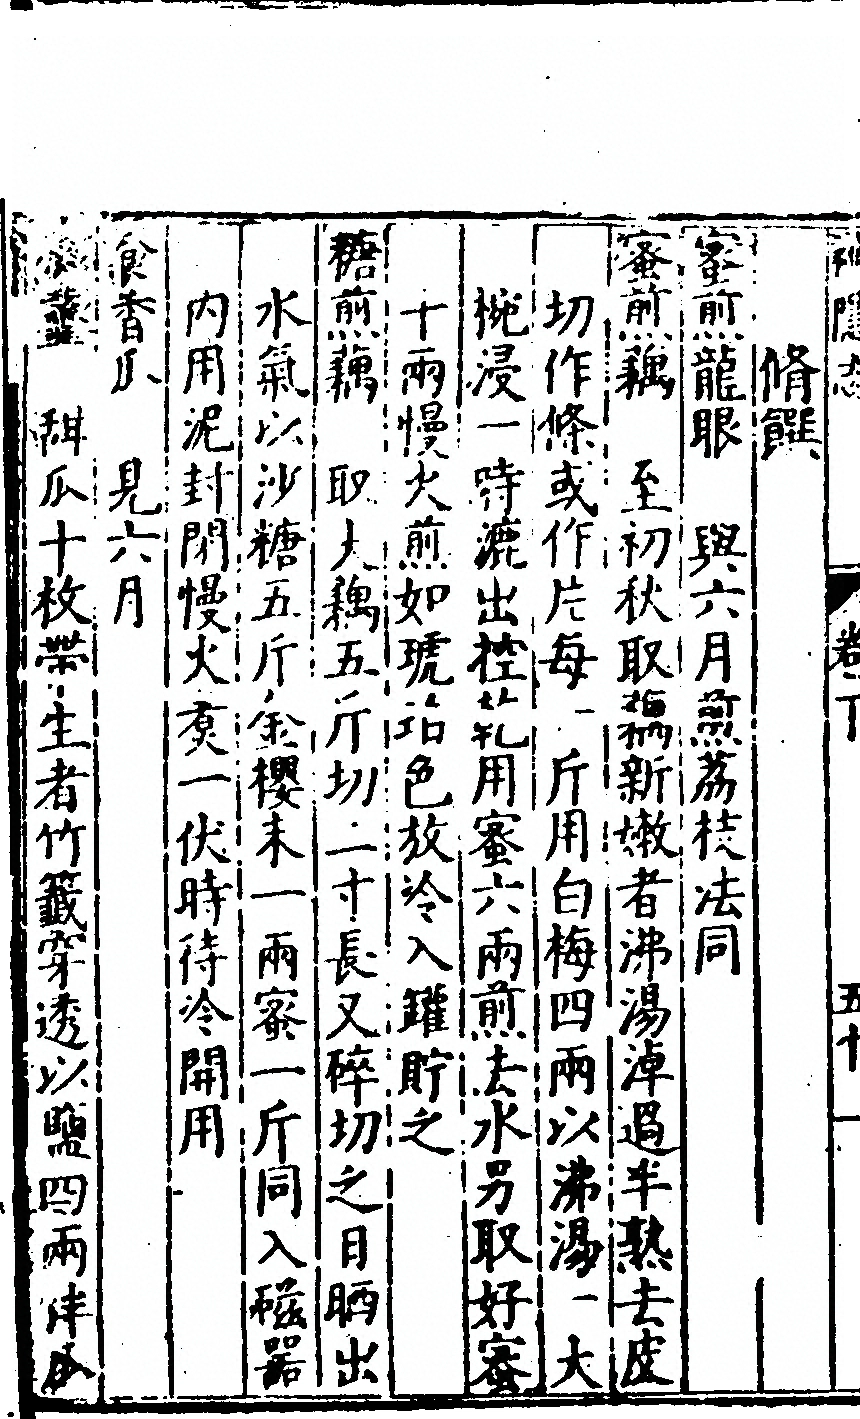 卷下　五十一
脩饌
蜜煎龍眼　與六月煎荔枝法同
蜜煎藕　至初秋取藕新嫩者沸湯淖過半熟去皮
切作條或作片每一斤用白梅四兩以沸湯一大
椀浸一時漉出控乹用蜜六兩煎去水另取好蜜
十兩慢火煎如琥珀色放冷入罐貯之
糖煎藕　取大藕五斤切二寸長又碎切之日晒出
水氣以沙糖五斤金櫻末一兩蜜一斤同入磁器
内用泥封閉慢火煑一伏時待冷開用
食香瓜　見六月
甜瓜十枚帶生者竹籤穿透以鹽四兩伴